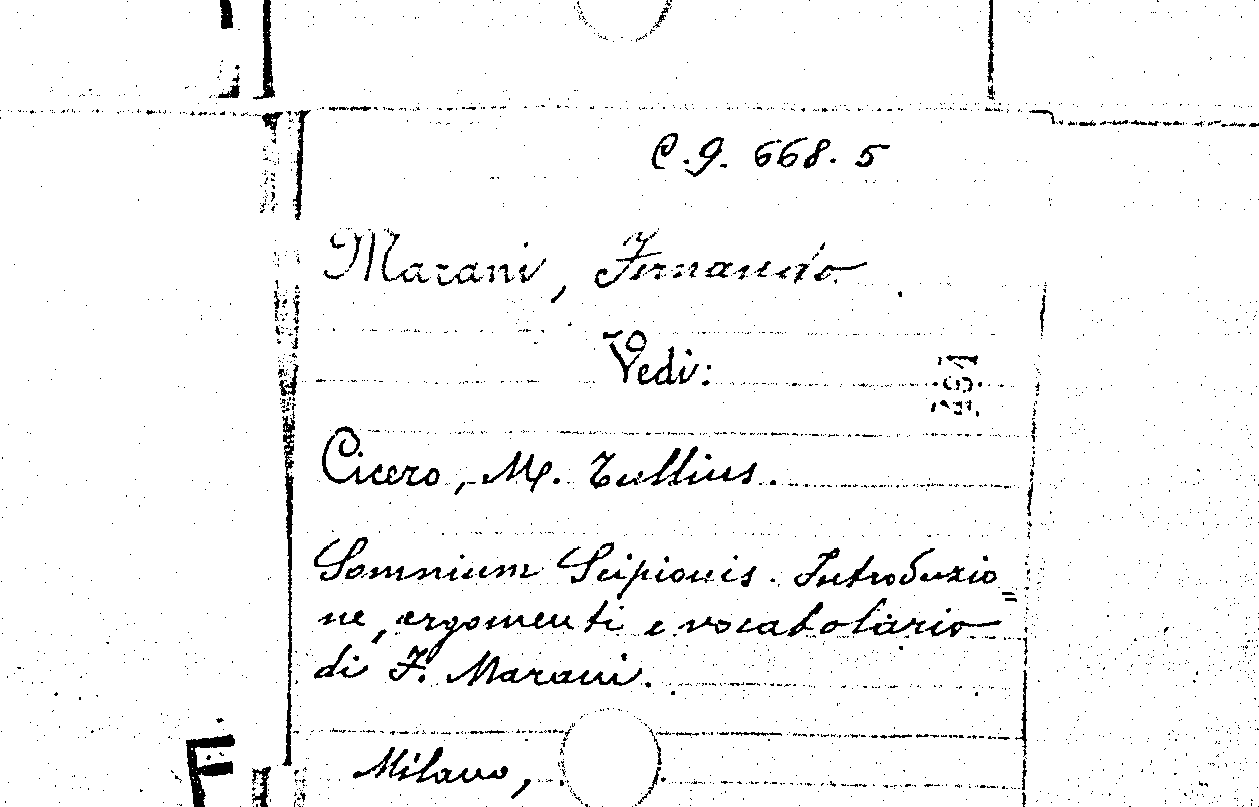 C.g. 668. 5
Marani, Fernando.
Vedi:
Cicero, M. Tullius.
Somnium Scipionis. Introduzio=
ne, argomenti e vocabolario
di F. Marani.
Milano,